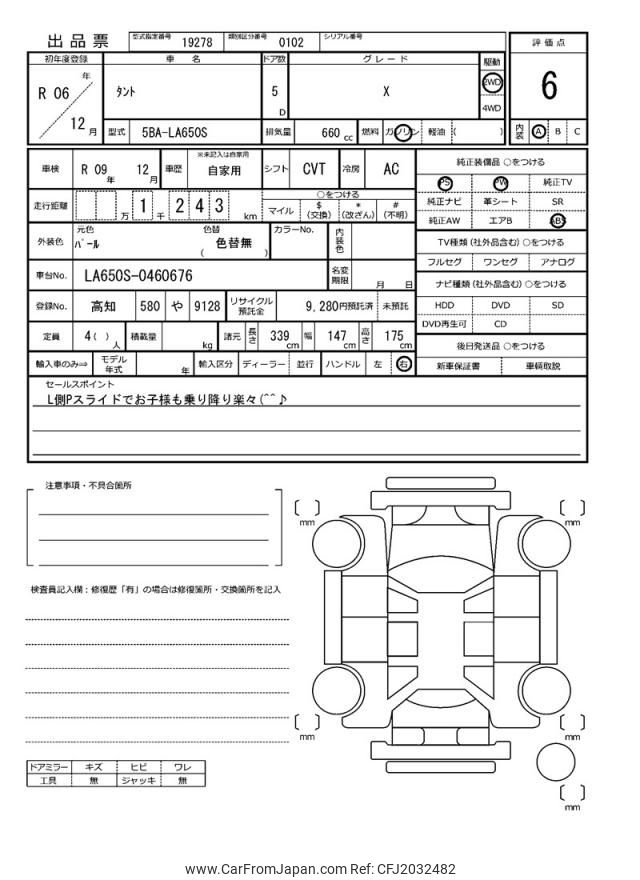 出品票 型式指定番号 19278 類別区分番号 0102 シリアル番号
評価点
6
内装 A B C
初年度登録 車名 ドア数 グレード 駆動
R 06 年 12 月 タント 5 D X 2WD 4WD
型式 5BA-LA650S 排気量 660 cc 燃料 ガソリン 軽油 ( )
車検 R 09 年 12 月 車歴 ※未記入は自家用 自家用 シフト CVT 冷房 AC
走行距離 万 1 千 2 4 3 km ○をつける
マイル $ (交換) * (改ざん) # (不明)
外装色 元色 パール 色替 色替無 ( ) カラーNo. 内装色
車台No. LA650S-0460676 名変期限 月 日
登録No. 高知 580 や 9128 リサイクル預託金 9,280円預託済 未預託
定員 4( ) 人 積載量 kg 諸元 長さ 339 cm 幅 147 cm 高さ 175 cm
輸入車のみ⇒ モデル年式 年 輸入区分 ディーラー 並行 ハンドル 左 右
純正装備品 ○をつける
PS PW 純正TV
純正ナビ 革シート SR
純正AW エアB ABS
TV種類(社外品含む)○をつける
フルセグ ワンセグ アナログ
ナビ種類(社外品含む)○をつける
HDD DVD SD
DVD再生可 CD
後日発送品 ○をつける
新車保証書 車輌取説
セールスポイント
L側Pスライドでお子様も乗り降り楽々(^^♪
注意事項・不具合箇所
検査員記入欄：修復歴「有」の場合は修復箇所・交換箇所を記入
ドアミラー キズ ヒビ ワレ
工具 無 ジャッキ 無
[ ] mm
[ ] mm
[ ] mm
[ ] mm
[ ] mm
www.CarFromJapan.com Ref: CFJ2032482